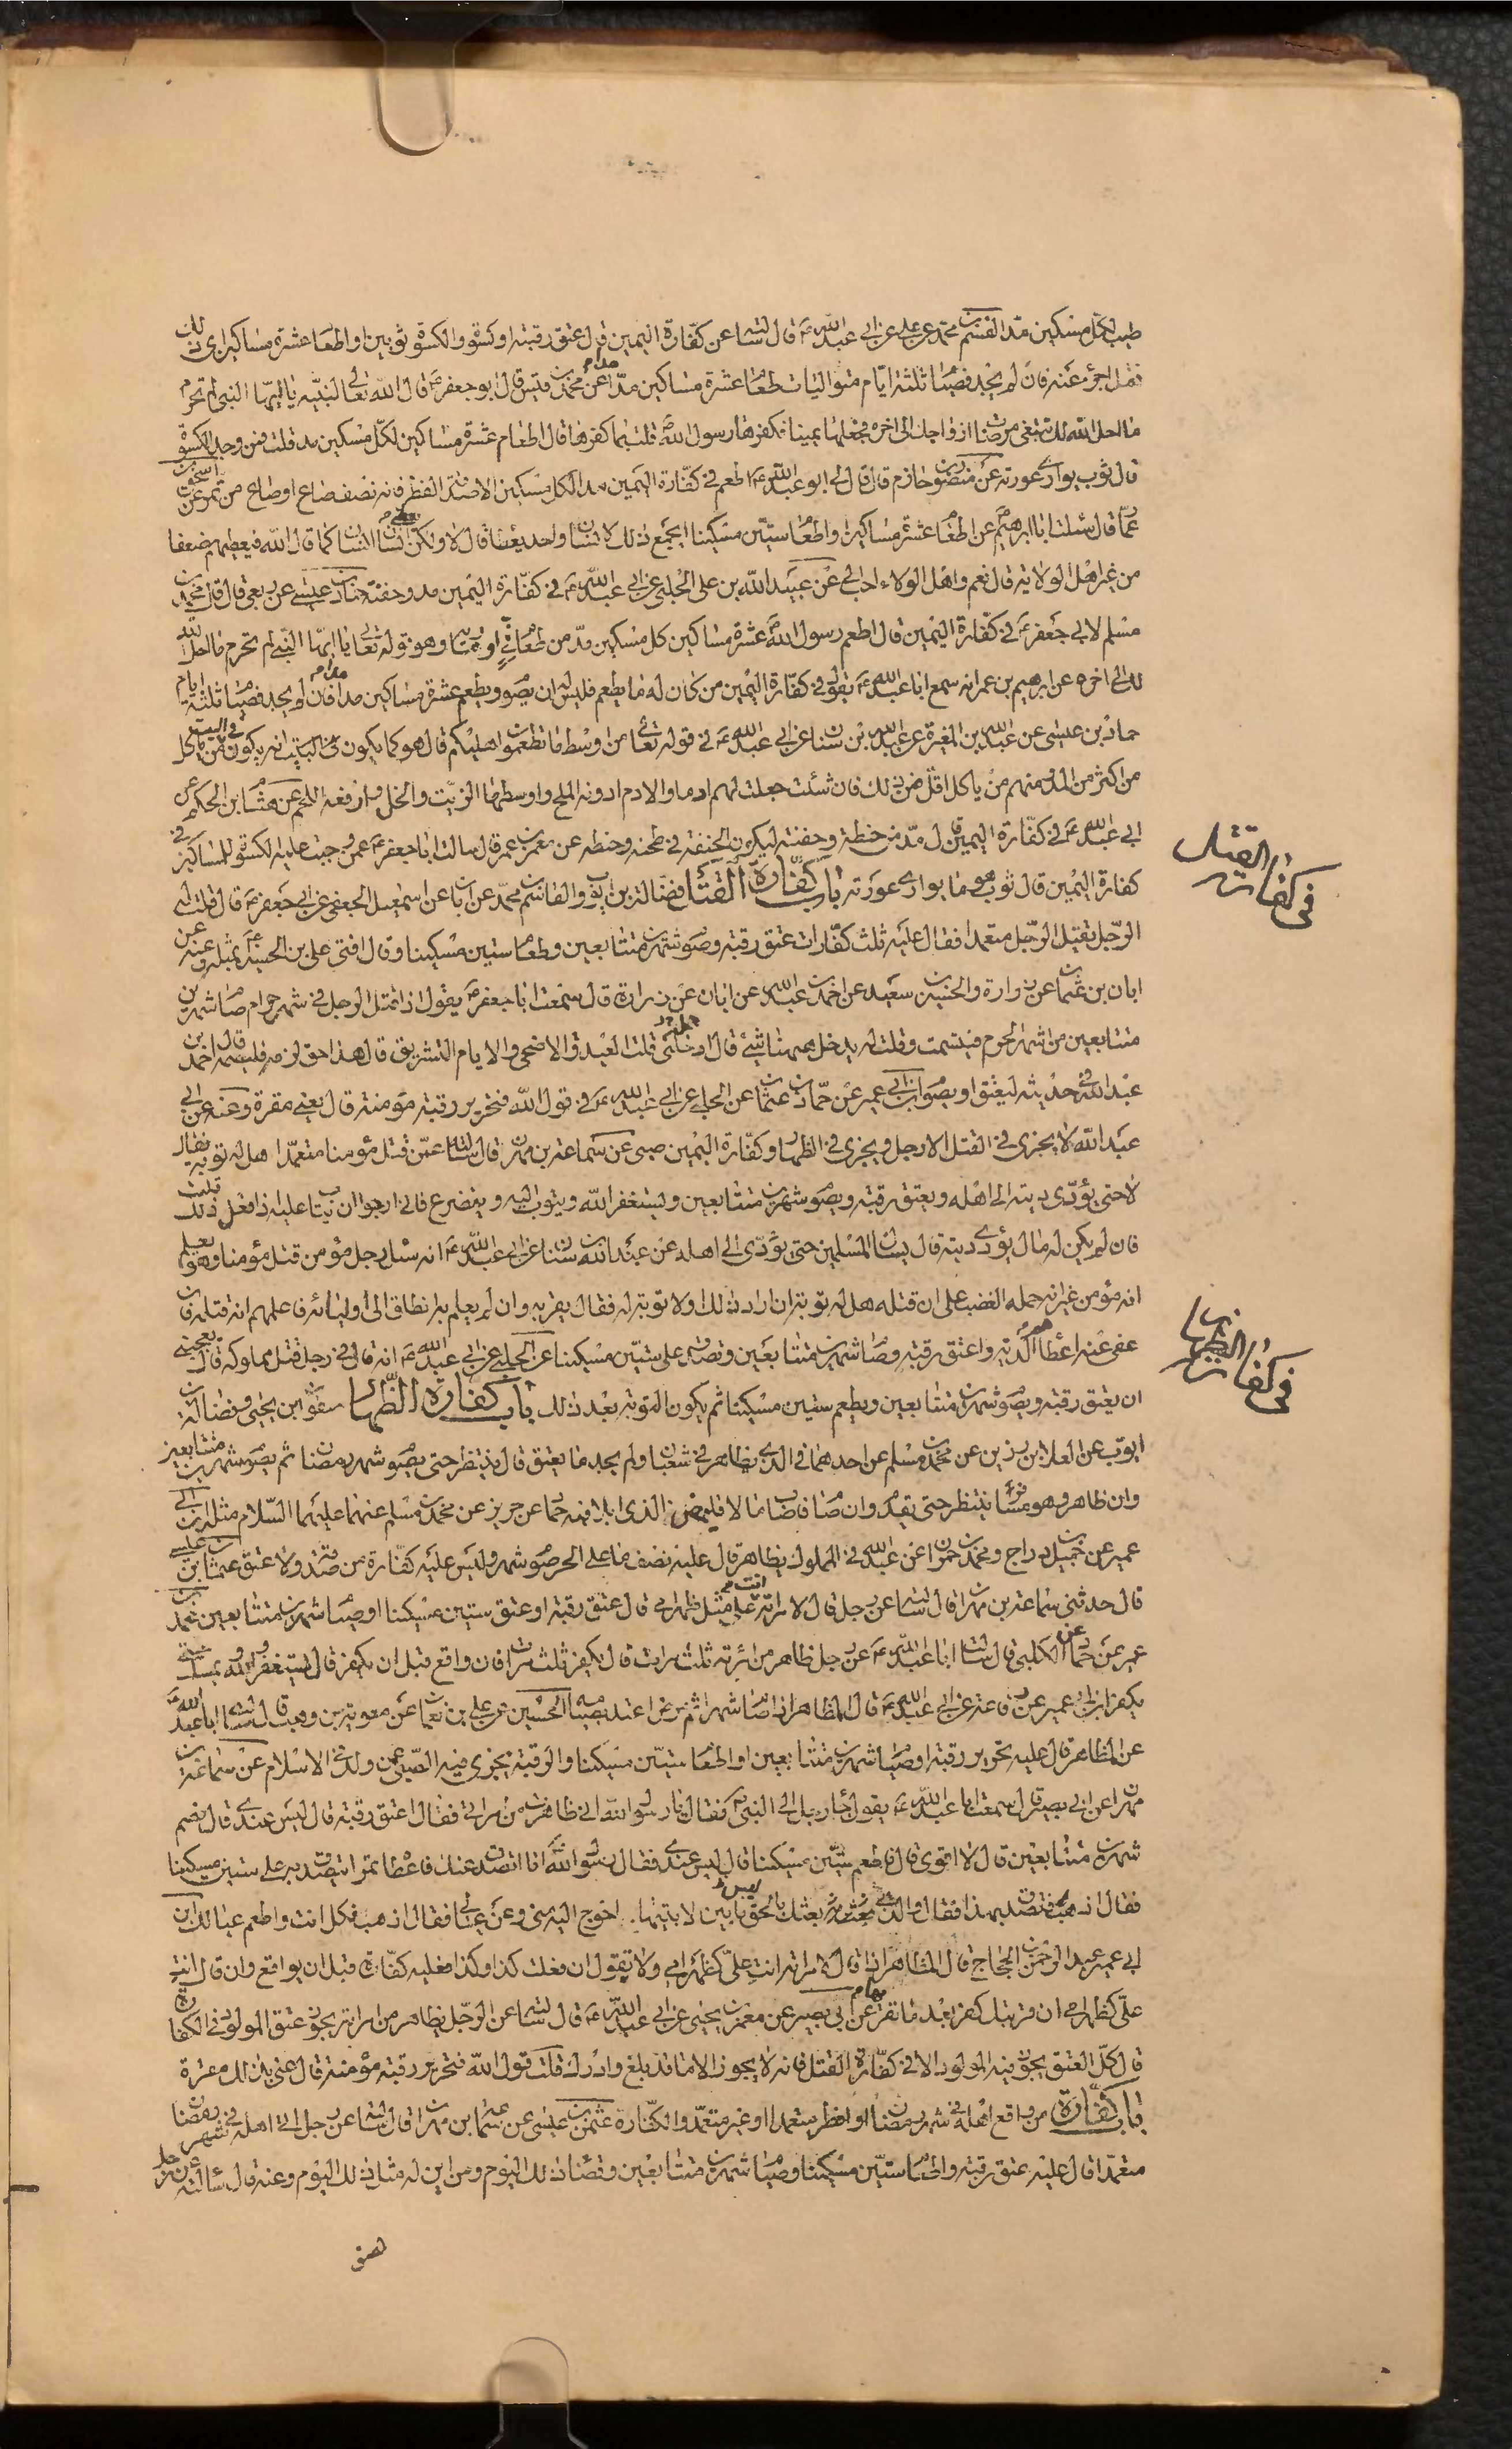 طيب لكل مسكين مد القسم بن محمد عن علي عن ابي عبد الله ع قال سالته عن كفارة اليمين قال عتق رقبة او كسوة والكسوة ثوبين او اطعام عشرة مساكين اي ذلك
فعل اجزء عنه فان لم يجد فصيام ثلثة ايام متواليات طعام عشرة مساكين مدا مدا عن محمد بن قيس قال ابو جعفر ع قال الله تعالى لنبيه يا ايها النبي لم تحرم
ما احل الله لك تبتغي مرضات ازواجك الى اخره فجعلها يمينا فكفرها رسول الله ص قلت بما كفرها قال اطعام عشرة مساكين لكل مسكين مد قلت فمن وجد الكسوة
قال ثوب يواري عورته عن منصور بن حازم قال قال لي ابو عبد الله ع اطعم في كفارة اليمين مدا لكل مسكين الا صدقة الفطر فانه نصف صاع او صاع من تمر عن اسحق بن
عمار قال سئلت ابا ابرهيم ع عن اطعام عشرة مساكين واطعام ستين مسكينا ايجمع ذلك لانسان واحد يعطاه قال لا ولكن انسان انسان كما قال الله فيعطيهم ضعفا
من غير اهل الولاية قال نعم واهل الولاء احب الي عن عبيد الله بن علي الحلبي عن ابي عبد الله ع في كفارة اليمين مد وحفنة حماد بن عيسى عن ربعي قال قال محمد بن
مسلم لابي جعفر ع في كفارة اليمين قال اطعم رسول الله ص عشرة مساكين كل مسكين مد من طعام في امر مارية وهو قوله تعالى يا ايها النبي لم تحرم ما احل الله
لك الى اخره عن ابرهيم بن عمر انه سمع ابا عبد الله ع يقول في كفارة اليمين من كان له ما يطعم فليس له ان يصوم ويطعم عشرة مساكين مدا مدا فان لم يجد فصيام ثلثة ايام
حماد بن عيسى عن عبد الله بن المغيرة عن عبد الله بن سنان عن ابي عبد الله ع في قوله تعالى من اوسط ما تطعمون اهليكم قال هو كما يكون في البيت انه يكون في البيت من ياكل
من اكثر من المد ومنهم من ياكل اقل من ذلك فان شئت جعلت لهم ادما والادم ادونه الملح واوسطها الزيت والخل وارفعه اللحم عن هشام بن الحكم عن
ابي عبد الله ع في كفارة اليمين قال مد من حنطة وحفنة ليكون الحفنة في طحنه وحنطه عن معمر بن عمر قال سالت ابا جعفر ع عمن وجبت عليه الكسوة للمساكين في
كفارة اليمين قال ثوب هو ما يواري عورته باب كفارة القتل فضالة بن ايوب والقاسم بن محمد عن ابان عن اسمعيل الجعفي عن ابي جعفر ع قال قلت له
الرجل يقتل الرجل متعمدا فقال عليه ثلث كفارات عتق رقبة وصوم شهرين متتابعين وطعام ستين مسكينا وقال افتى علي بن الحسين ع بمثله وعنه عن
ابان بن عثمان عن زرارة والحسين بن سعيد عن احمد بن عبد الله عن ابان عن زرارة قال سمعت ابا جعفر ع يقول اذا قتل الرجل في شهر حرام صام شهرين
متتابعين من اشهر الحرم فتبسمت وقلت له يدخل ههنا شئ قال ادخلني قلت العيد والاضحى والايام التشريق قال هذا حق لزمه فليصمه قال احمد بن
عبد الله في حديثه ليعتق او يصوم ابن ابي عمير عن حماد بن عثمان عن الحلبي عن ابي عبد الله ع في قول الله فتحرير رقبة مؤمنة قال يعني مقرة وعنه عن ابي
عبد الله لا يجزي في القتل الا رجل ويجزي في الظهار وكفارة اليمين صبي عن سماعة بن مهران قال سالته عمن قتل مؤمنا متعمدا هل له توبة فقال
لا حتى يؤدي ديته الى اهله ويعتق رقبة ويصوم شهرين متتابعين ويستغفر الله ويتوب اليه ويتضرع فاني ارجو ان يتاب عليه اذا فعل ذلك قلت
فان لم يكن له مال يؤدي ديته قال يسال المسلمين حتى يؤدي الى اهله عن عبد الله بن سنان عن ابي عبد الله ع انه سئل رجل مؤمن قتل مؤمنا وهو يعلم
انه مؤمن غير انه حمله الغضب على ان قتله هل له توبة ان اراد ذلك او لا توبة له فقال يقر به وان لم يعلم به انطلق الى اوليائه فاعلمهم انه قتله فان
عفى عنه اعطاهم الدية واعتق رقبة وصام شهرين متتابعين وتصدق على ستين مسكينا عن الحلبي عن ابي عبد الله ع انه قال في رجل قتل مملوكه قال يعجبني
ان يعتق رقبة ويصوم شهرين متتابعين ويطعم ستين مسكينا ثم يكون التوبة بعد ذلك باب كفارة الظهار صفوان بن يحيى وفضالة بن
ايوب عن العلا بن رزين عن محمد بن مسلم عن احدهما في الذي يظاهر في شعبان ولم يجد ما يعتق قال ينتظر حتى يصوم شهر رمضان ثم يصوم شهرين متتابعين
وان ظاهر وهو مسافر ينتظر حتى يقدم وان صام فاصاب مالا فليمض الذي ابدا فيه حماد عن حريز عن محمد بن مسلم عنهما عليهما السلام مثله ابن ابي
عمير عن جميل بن دراج ومحمد بن حمران عن ابي عبد الله ع في المملوك يظاهر قال عليه نصف ما على الحر صوم شهر وليس عليه كفارة من صدقة ولا عتق عثمان بن عيسى
قال حدثني سماعة بن مهران قال سالته عن رجل قال لامراته انت علي مثل ظهر امي قال عتق رقبة او عتق ستين مسكينا او صيام شهرين متتابعين محمد بن
عمير عن حماد عن الكلبي قال سالت ابا عبد الله ع عن رجل ظاهر من امرئته ثلث مرات قال يكفر ثلث مرات فان واقع قبل ان يكفر قال يستغفر الله ويمسك حتى
يكفر ابن ابي عمير عن رفاعة عن ابي عبد الله ع قال المظاهر اذا صام شهرا ثم مرض اعتد بصيامه الحسين عن علي بن نعمان عن معوية بن وهب قال سالت ابا عبد الله ع
عن المظاهر قال عليه تحرير رقبة او صيام شهرين متتابعين او اطعام ستين مسكينا والرقبة يجزي فيه الصبي عمن ولد في الاسلام عن سماعة بن
مهران عن ابي بصير قال سمعت ابا عبد الله ع يقول جاء رجل الى النبي ص فقال يا رسول الله اني ظاهرت من امراتي فقال اعتق رقبة قال ليس عندي قال فصم
شهرين متتابعين قال لا اقوى قال فاطعم ستين مسكينا قال ليس عندي فقال رسول الله ص انا اتصدق عنك فاعطاه تمرا تتصدق به على ستين مسكينا
فقال اذهب فتصدق بهذا فقال والذي بعثك بالحق ليس ما بين لابتيها احوج اليه مني وعن عيالي فقال اذهب فكل انت واطعم عيالك ابن
ابي عمير عن عبد الرحمن بن الحجاج قال المظاهر اذا قال لامراته انت علي كظهر امي ولا يقول ان فعلت كذا وكذا فعليه كفارة قبل ان يواقع وان قال انت
علي كظهر امي ان قربتك كفر بعد ما تقرب عن ابي بصير عن معمر بن يحيى عن ابي عبد الله ع قال سالته عن الرجل يظاهر من امراته يجوز عتق المولود في الكفارة
قال كل العتق يجوز فيه المولود الا في كفارة القتل فانه لا يجوز الا ما قد بلغ وادرك قلت قول الله فتحرير رقبة مؤمنة قال عنى بذلك مقرة
باب كفارة من واقع اهله في شهر رمضان او افطر متعمدا او غير متعمد والكفارة عثمن بن عيسى عن سماعة بن مهران قال سالته عن رجل اتى اهله في شهر رمضان
متعمدا قال عليه عتق رقبة واطعام ستين مسكينا وصيام شهرين متتابعين وقضاء ذلك اليوم ومن اين له مثل ذلك اليوم وعنه قال سألته عن رجل
في كفارت القتل
في كفارت الظهار